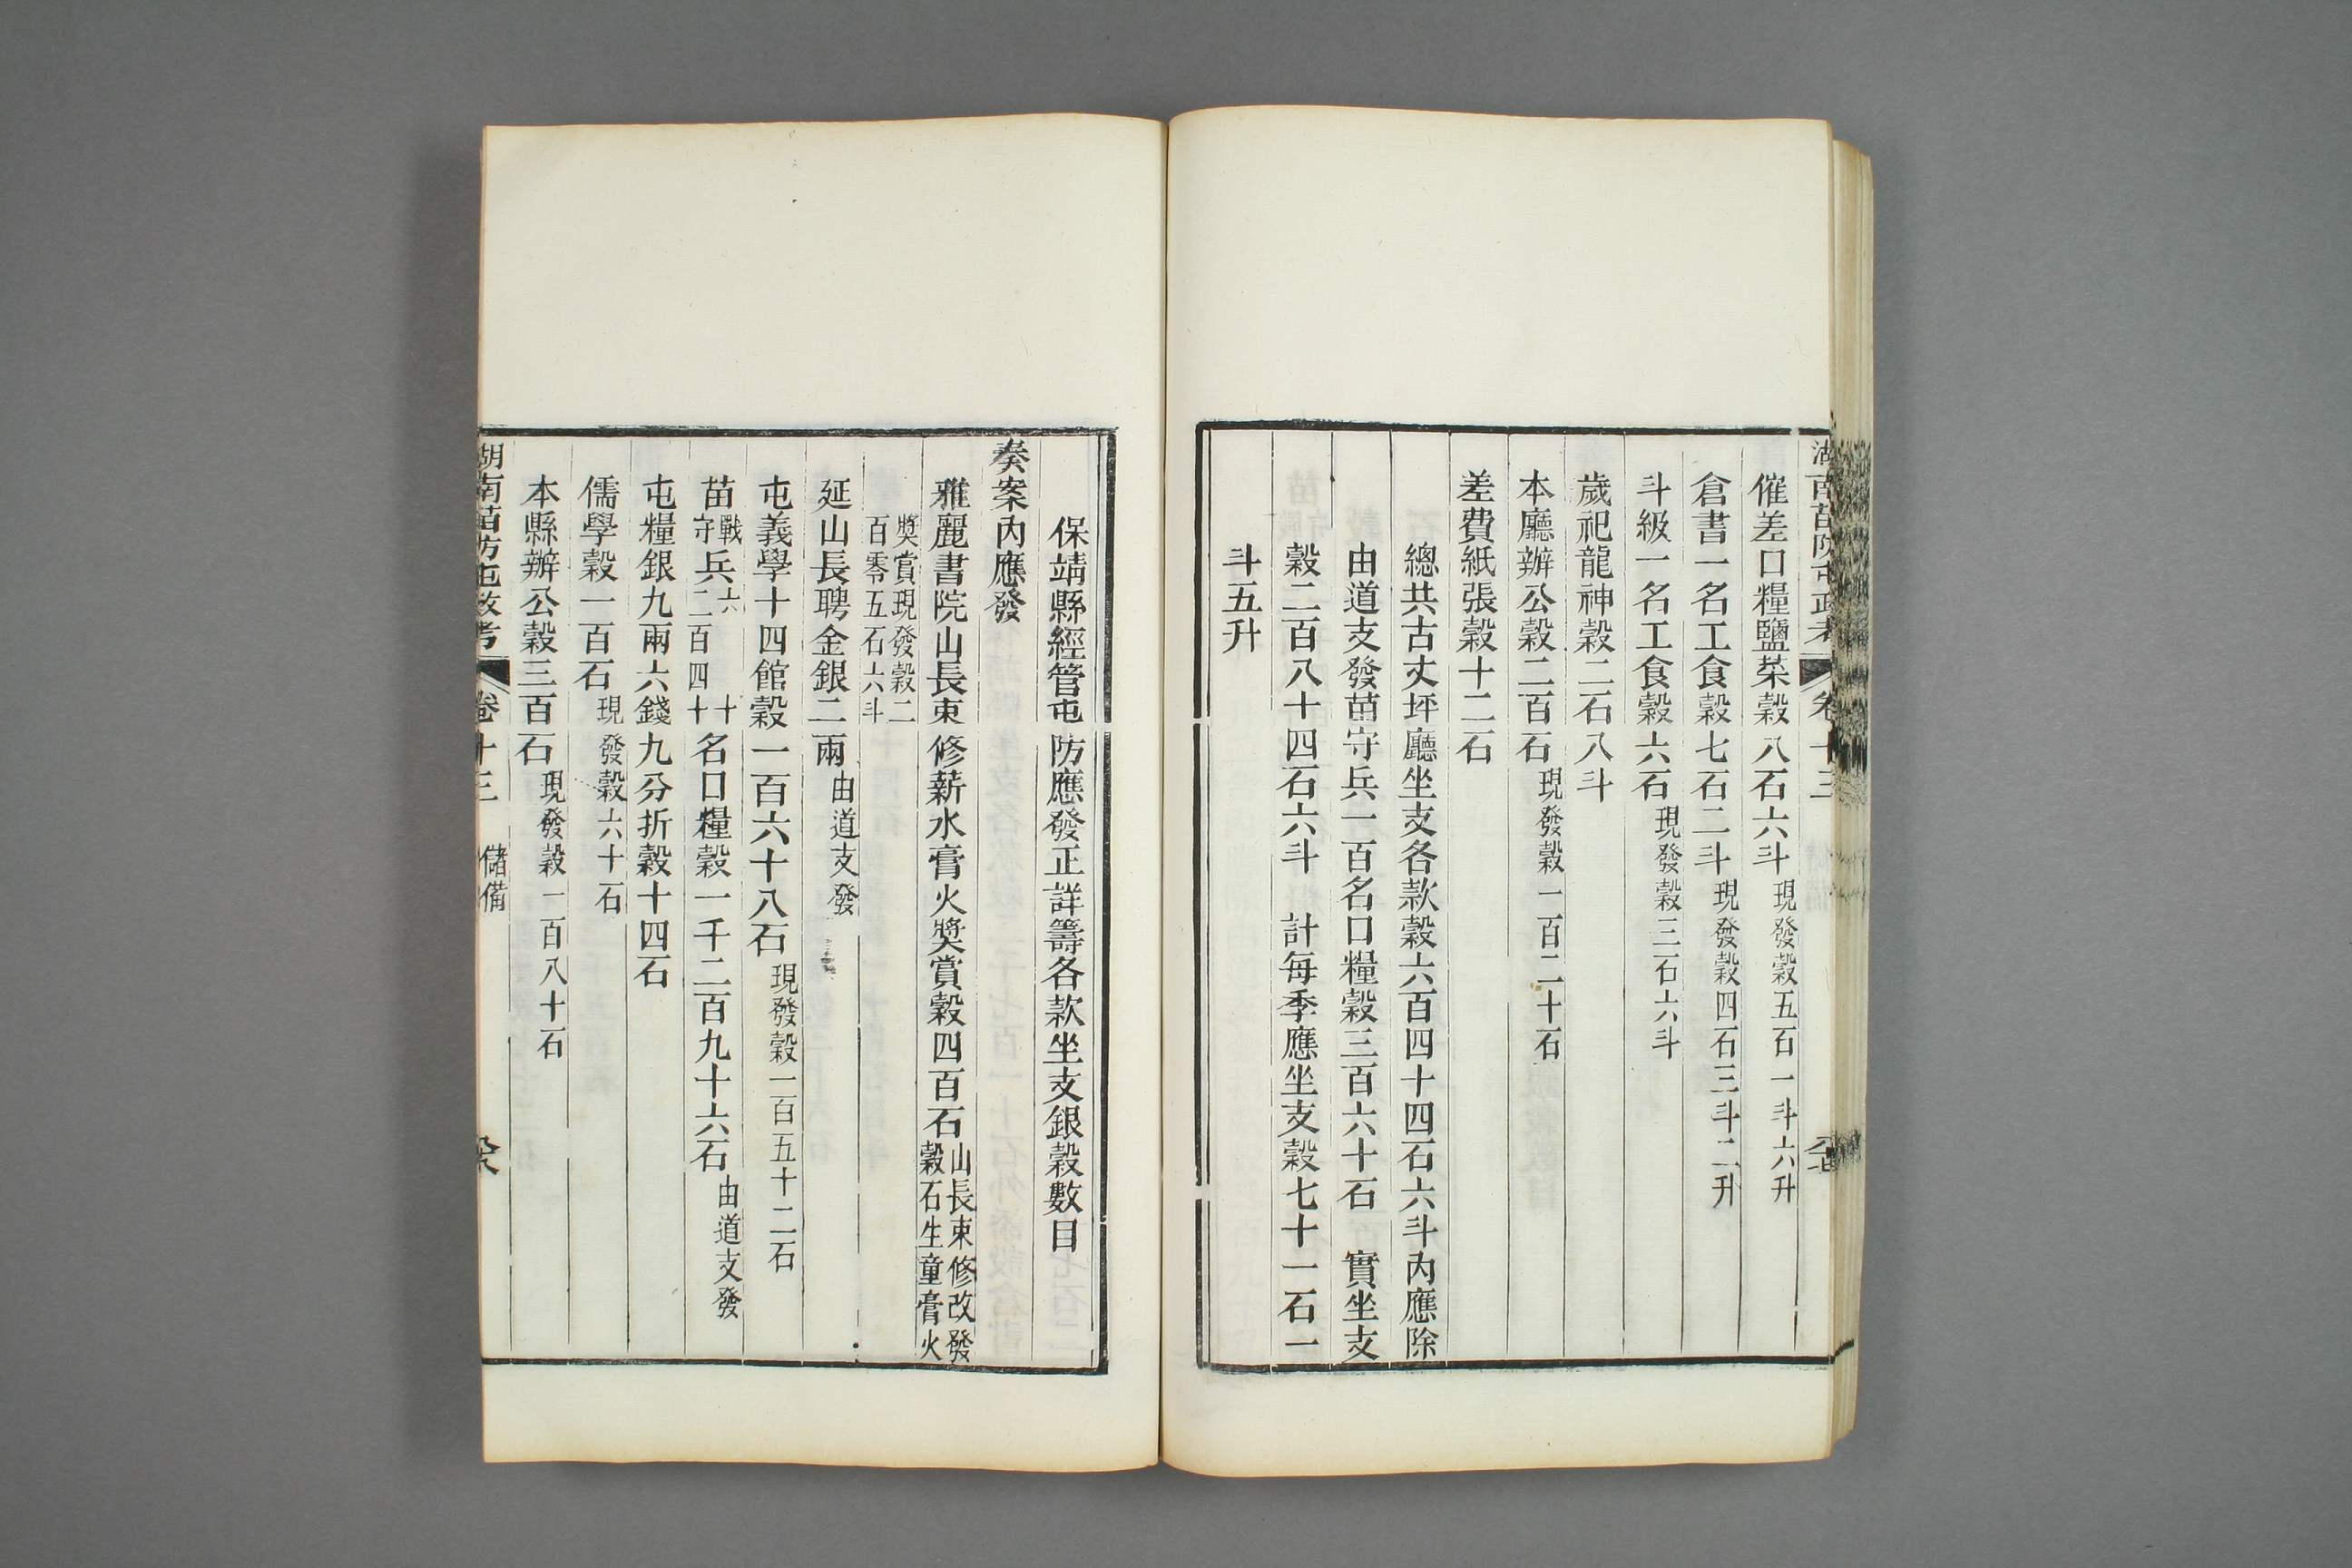 湖南苗防屯政考 卷十三
催差口糧鹽菜穀八石六斗現發穀五石一斗六升
倉書一名工食穀七石二斗現發穀四石三斗二升
斗級一名工食穀六石現發穀三石六斗
歲祀龍神穀二石八斗
本廳辦公穀二百石現發穀一百二十石
差費紙張穀十二石
總共古丈坪廳坐支各款穀六百四十四石六斗內應除
由道支發苗守兵一百名口糧穀三百六十石 實坐支
穀二百八十四石六斗 計每季應坐支穀七十一石一
斗五升
保靖縣經管屯防應發正詳籌各款坐支銀穀數目
奏案內應發
雅麗書院山長束修薪水膏火獎賞穀四百石山長束修改發穀石生童膏火
獎賞現發穀二百零五石六斗
延山長聘金銀二兩由道支發
屯義學十四館穀一百六十八石現發穀一百五十二石
苗戰守兵六十二百四十名口糧穀一千二百九十六石由道支發
屯糧銀九兩六錢九分折穀十四石
儒學穀一百石現發穀六十石
本縣辦公穀三百石現發穀一百八十石
湖南苗防屯政考 卷十三 儲備